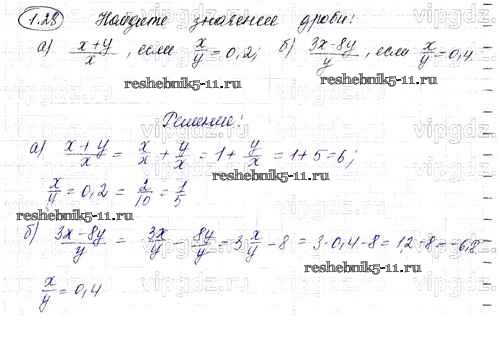 1.28 Найдите значение дроби:
а) (x+y)/x, если x/y = 0,2; б) (3x-8y)/y, если x/y = 0,4.
reshebnik5-11.ru reshebnik5-11.ru
Решение:
а) (x+y)/x = x/x + y/x = 1 + y/x = 1+5=6;
reshebnik5-11.ru
x/y = 0,2 = 2/10 = 1/5
reshebnik5-11.ru
б) (3x-8y)/y = 3x/y - 8y/y = 3·x/y - 8 = 3·0,4-8=1,2-8=-6,8
reshebnik5-11.ru
x/y = 0,4
vipgdz